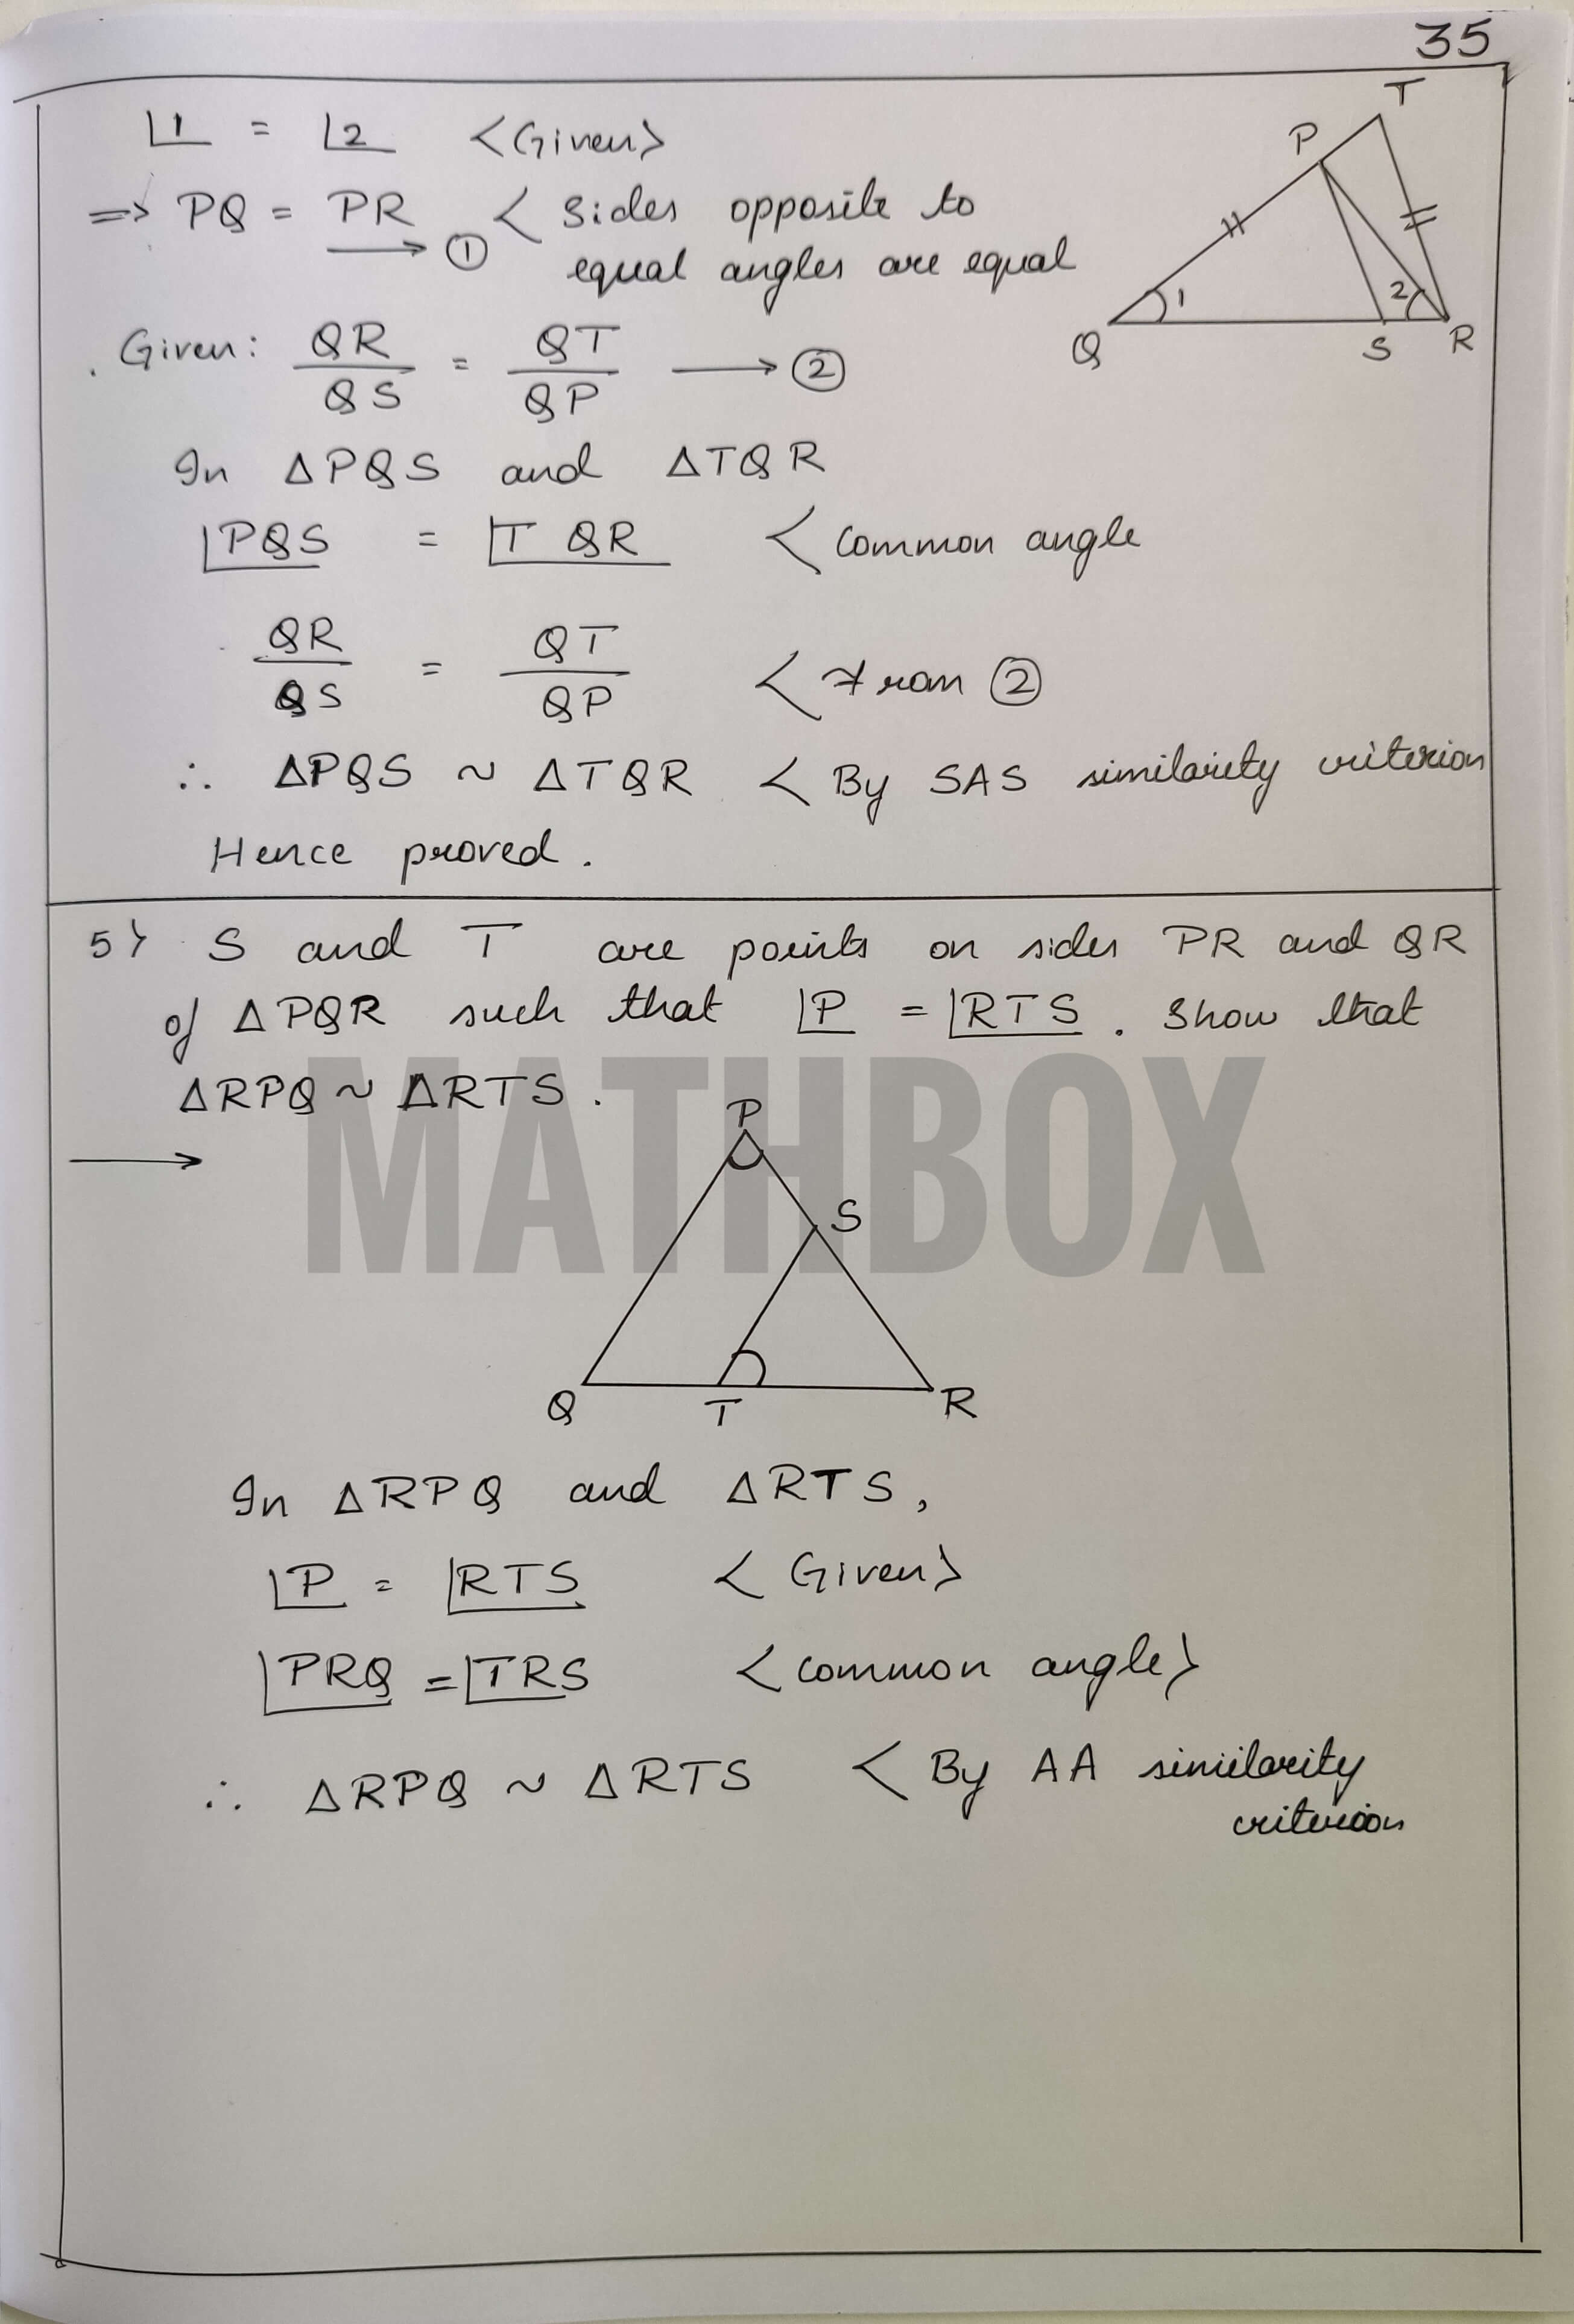 35
∠1 = ∠2 <Given>
=> PQ = PR < Sides opposite to
⟶ ① equal angles are equal
T
P
1
2
Q
S
R
Given: QR/QS = QT/QP ⟶ ②
In ΔPQS and ΔTQR
∠PQS = ∠TQR < common angle
QR/QS = QT/QP < From ②
∴ ΔPQS ~ ΔTQR < By SAS similarity criterion
Hence proved.
5> S and T are points on sides PR and QR
of ΔPQR such that ∠P = ∠RTS. Show that
ΔRPQ ~ ΔRTS.
⟶
MATHBOX
P
S
Q
T
R
In ΔRPQ and ΔRTS,
∠P = ∠RTS < Given>
∠PRQ = ∠TRS < common angle>
∴ ΔRPQ ~ ΔRTS < By AA similarity
criterion